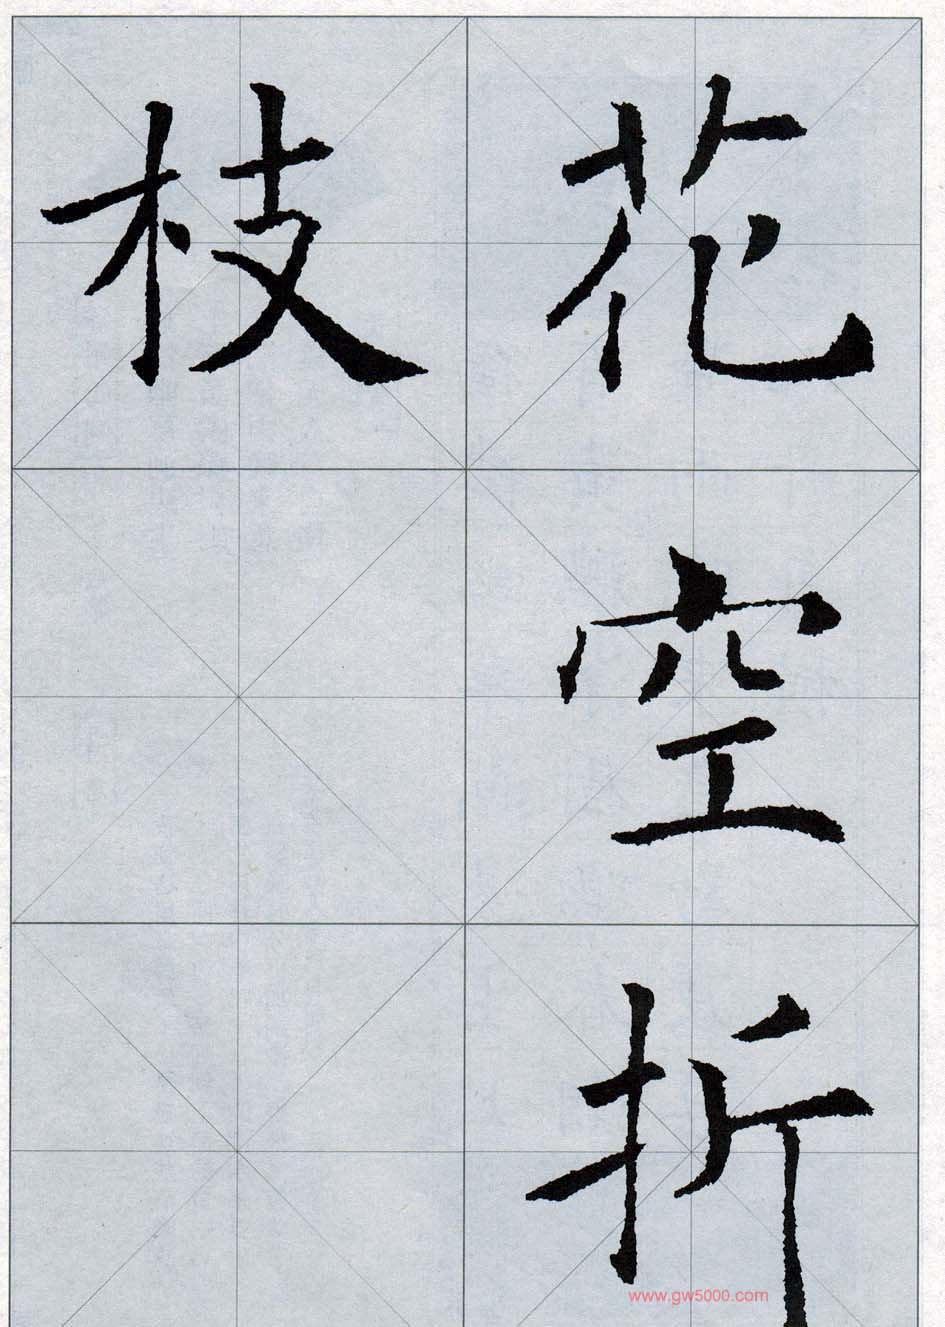 花空折
枝
www.gw5000.com